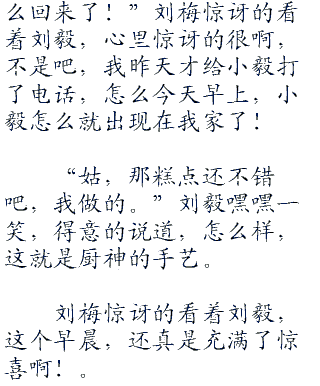 么回来了！”刘梅惊讶的看
着刘毅，心里惊讶的很啊，
不是吧，我昨天才给小毅打
了电话，怎么今天早上，小
毅怎么就出现在我家了！
“姑，那糕点还不错
吧，我做的。”刘毅嘿嘿一
笑，得意的说道，怎么样，
这就是厨神的手艺。
刘梅惊讶的看着刘毅，
这个早晨，还真是充满了惊
喜啊！。